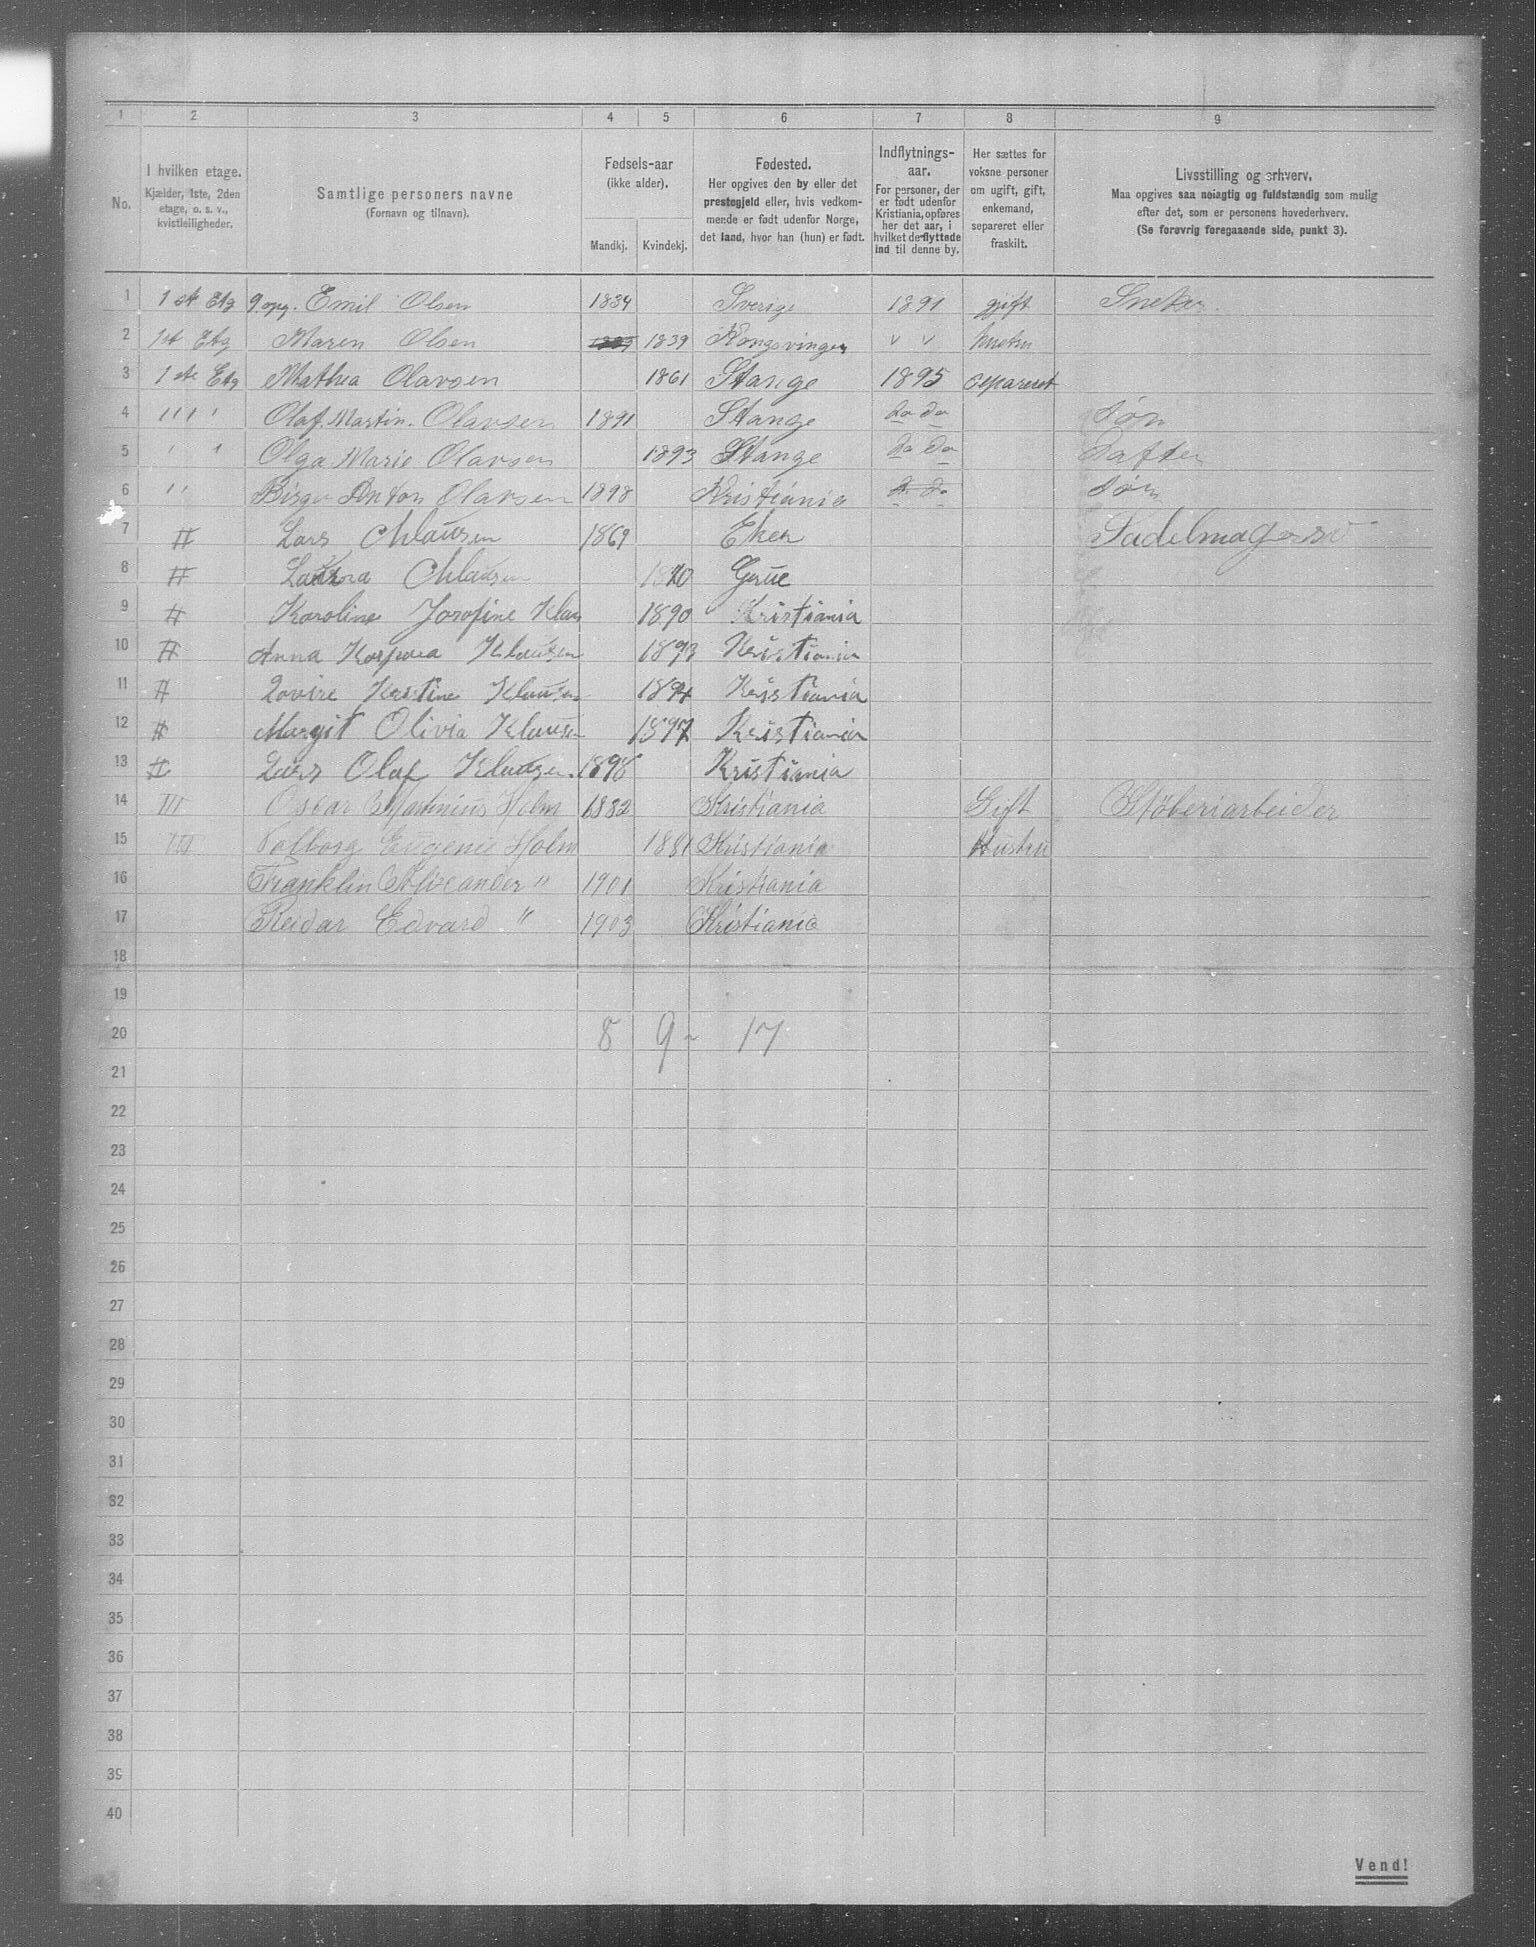 1 2 3 4 5 6 7 8 9
No.
I hvilken etage.
Kjælder, 1ste, 2den
etage, o. s. v.,
kvistleiligheder.
Samtlige personers navne
(Fornavn og tilnavn).
Fødsels-aar
(ikke alder).
Mandkj. Kvindekj.
Fødested.
Her opgives den by eller det
prestegjeld eller, hvis vedkom-
mende er født udenfor Norge,
det land, hvor han (hun) er født.
Indflytnings-
aar.
For personer, der
er født udenfor
Kristiania, opføres
her det aar, i
hvilket de flyttede
ind til denne by.
Her sættes for
voksne personer
om ugift, gift,
enkemand,
separeret eller
fraskilt.
Livsstilling og erhverv.
Maa opgives saa nøiagtig og fuldstændig som mulig
efter det, som er personens hovederhverv.
(Se forøvrig foregaaende side, punkt 3).
1 1ste Etg 9.opg. Emil Olsen 1834 Sverige 1891 gift Sneker
2 1st Etg Maren Olsen 1839 Kongsvinger " " hustru
3 1ste Etg Mathea Olavsen 1861 Stange 1895 separeret
4 " " Olaf. Martin. Olavsen 1891 Stange do do søn
5 " " Olga Marie Olavsen 1893 Stange do do datter
6 " Birger Anton Olavsen 1898 Kristiania do do søn
7 II Lars Chlausen 1869 Eker Sadelmager
8 II Laura Chlausen 1870 Grue
9 II Karoline Josofine Klau 1890 Kristiania
10 II Anna Klausen 1893 Kristiania
11 II Lovise Kristine Klausen 1894 Kristiania
12 II Margit Olivia Klausen 1897 Kristiania
13 II Lars Olaf Klausen. 1898 Kristiania
14 III Oskar Martinius Holm 1882 Kristiania Gift Støberiarbeider
15 III Valborg Eugenie Holm 1881 Kristiania Hustru
16 Franklin Alixander " 1901 Kristiania
17 Reidar Edvard " 1903 Kristiania
18
19
20 8 9 - 17
21
22
23
24
25
26
27
28
29
30
31
32
33
34
35
36
37
38
39
40
Vend!